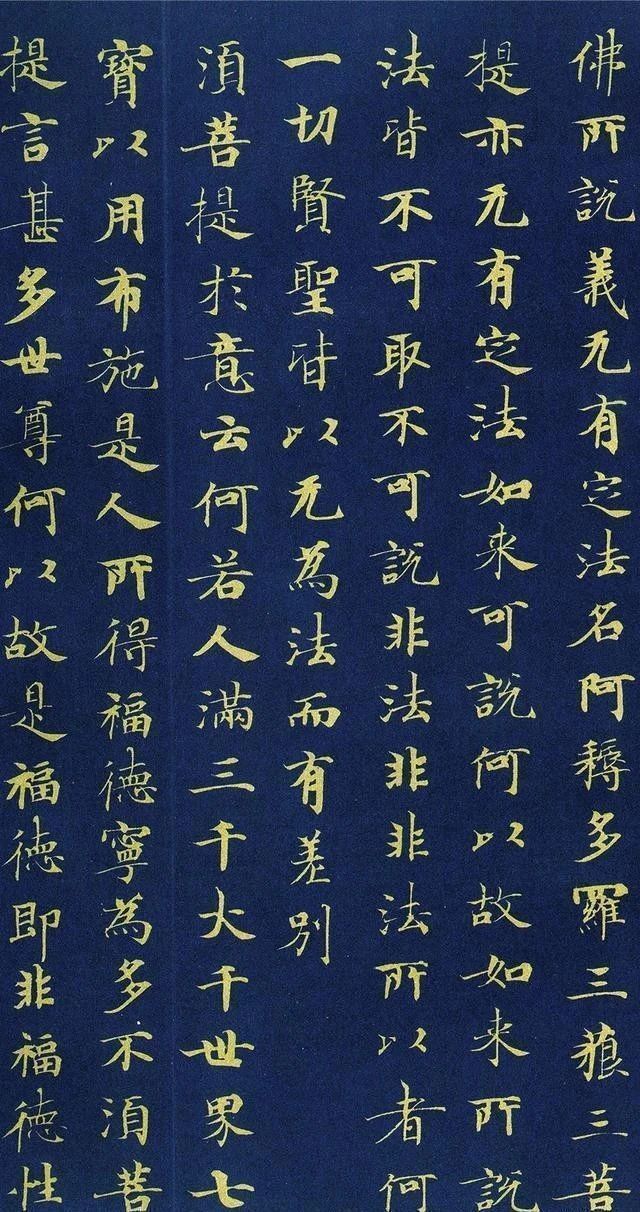 佛所說義无有定法名阿耨多羅三藐三菩
提亦无有定法如来可說何以故如来所說
法皆不可取不可說非法非非法所以者何
一切賢聖皆以无為法而有差别
須菩提於意云何若人滿三千大千世界七
寶以用布施是人所得福德寧為多不須菩
提言甚多世尊何以故是福德即非福德性